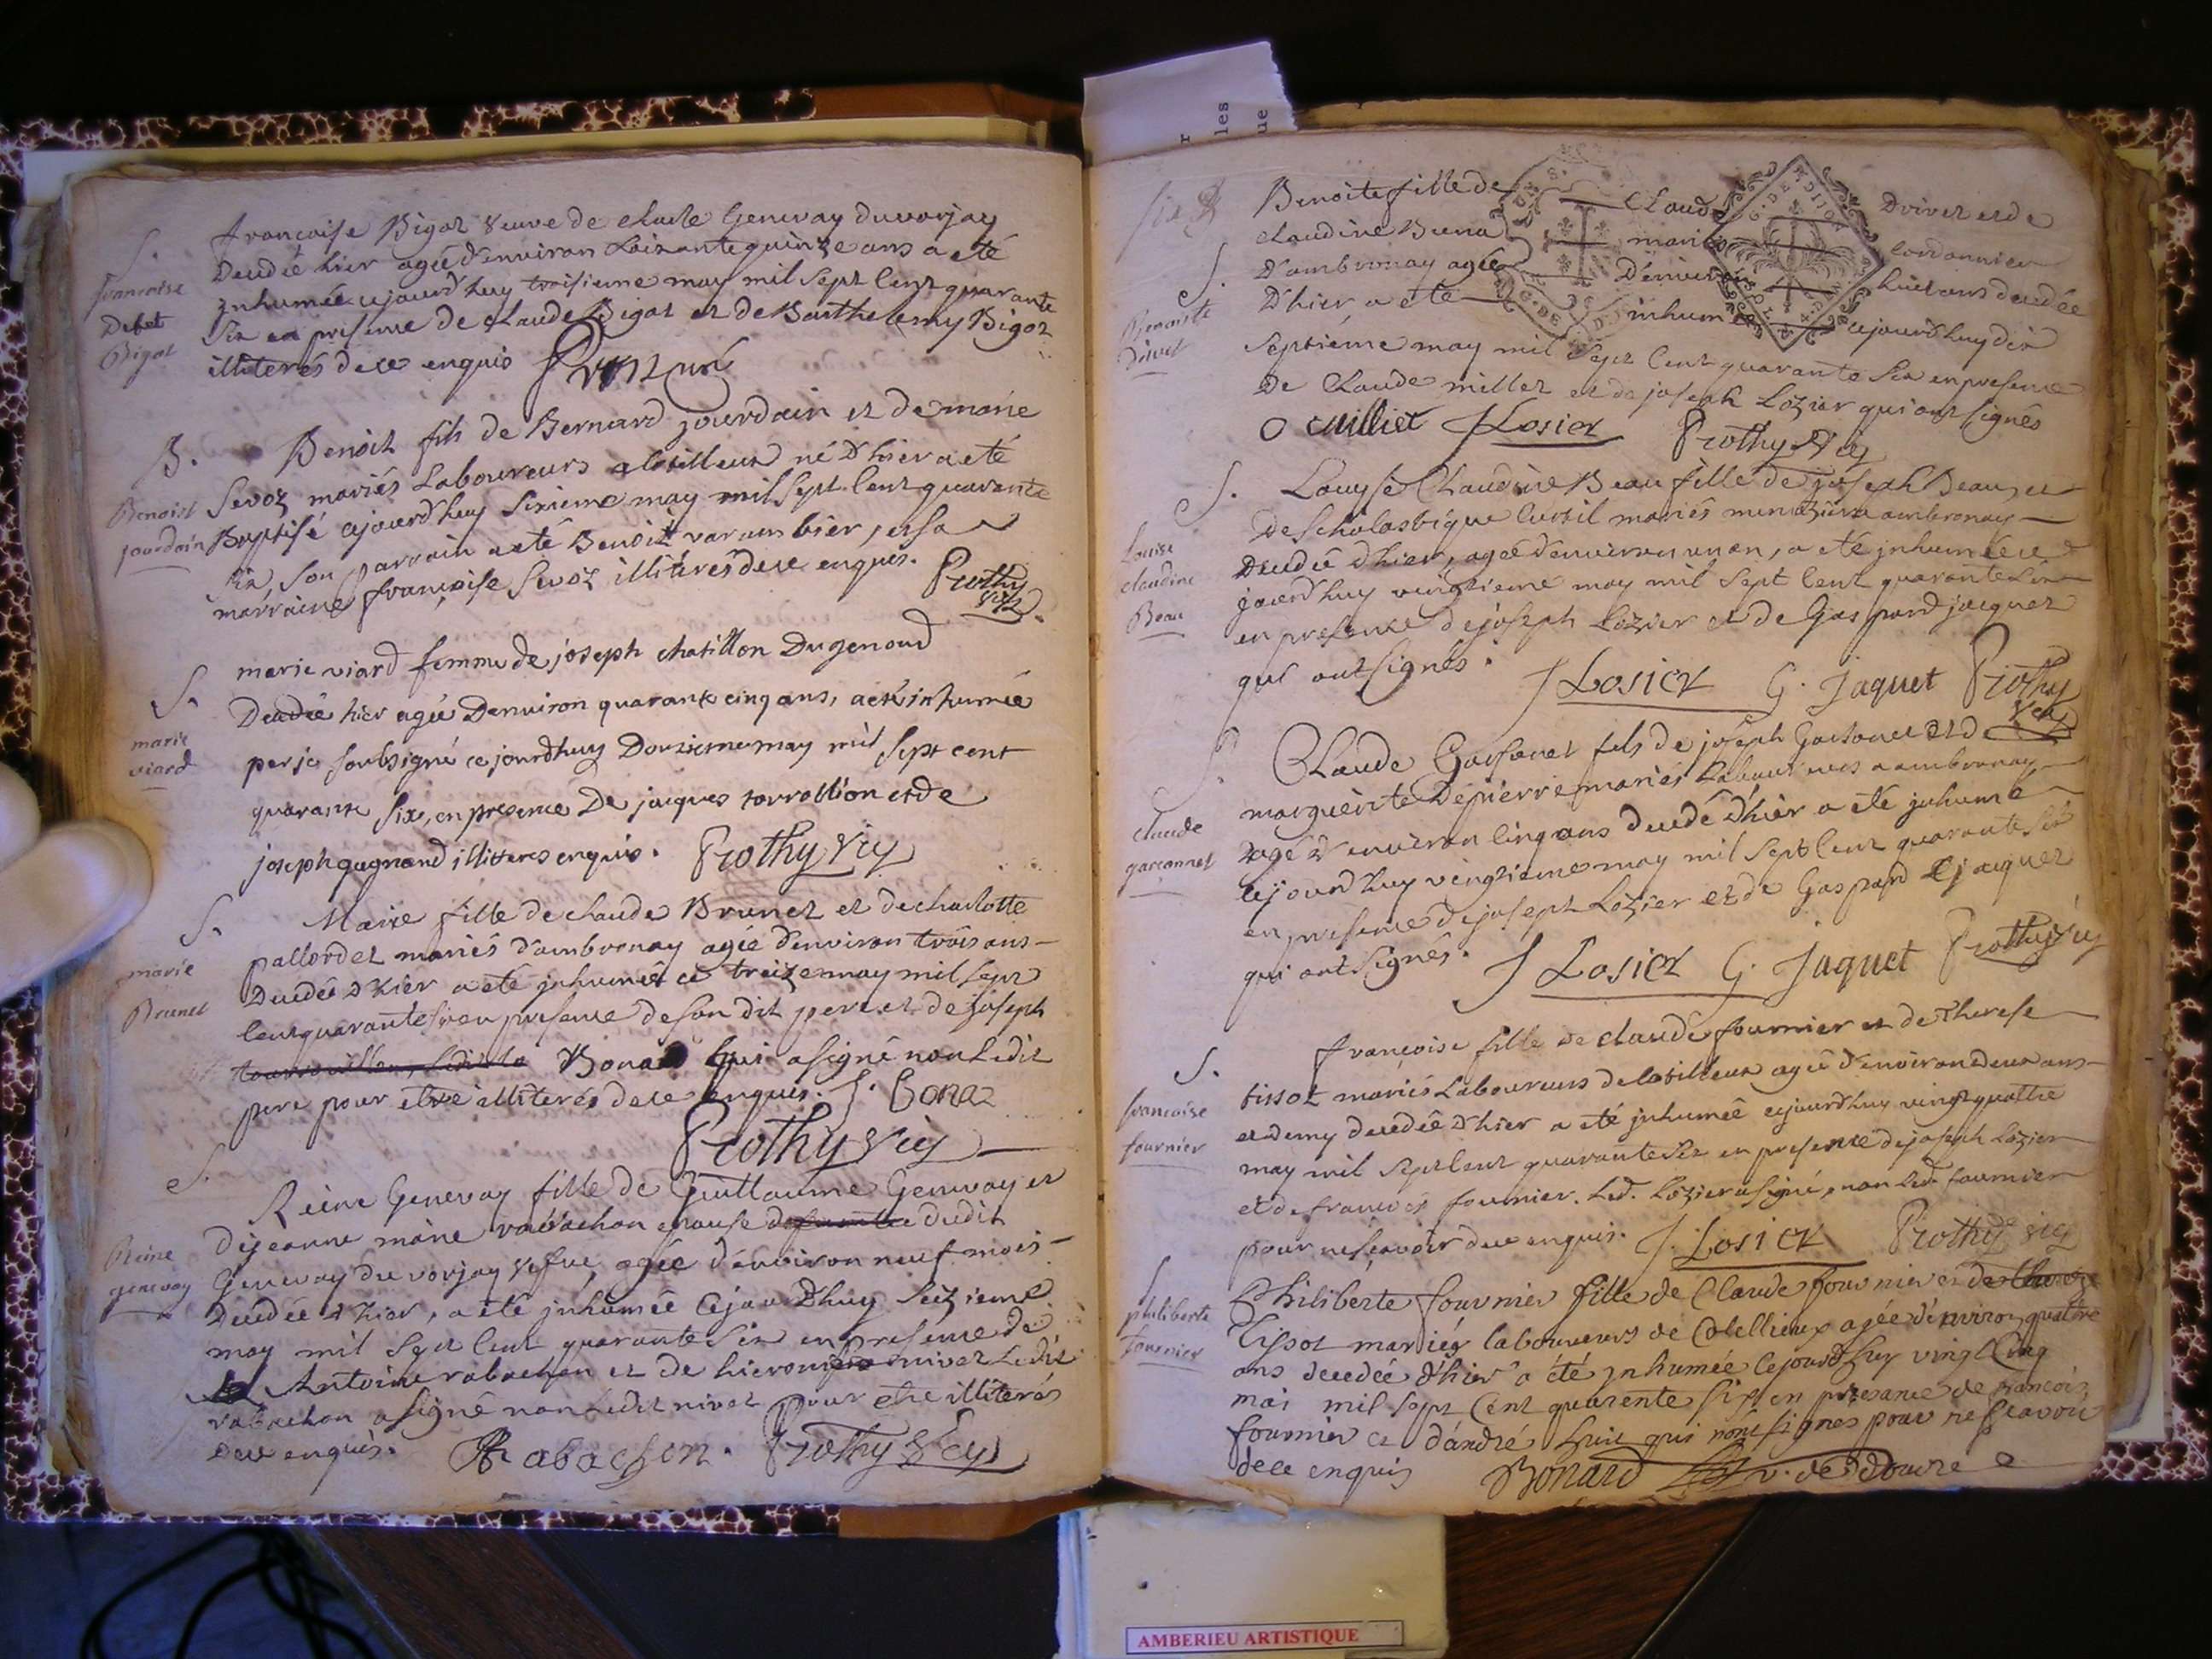 S.
francoise
Debet
Bigot
francoise Bigot veuve de charle Genevay du vorjay
decedée hier agée d'environ soixante quinze ans a eté
inhumée cejourd'huy troisieme may mil sept cent quarante
six en presence de claude Bigot et de Barthelemy Bigot
illiterés de ce enquis
B.
Benoist
jourdain
Benoit fils de Bernard jourdain et de marie
Sevoz mariés Laboureurs a né d'hier a eté
Baptisé cejourd'huy sixieme may mil sept cent quarante
six, son parrain a eté Benoit varambier, et sa
marraine françoise Sevoz illiterés de ce enquis. Prothy
vic
S.
marie
viard
marie viard femme de joseph chatillon Du genoud
Decedée hier agée Denviron quarante cinq ans, a eté inhumée
par je soubsigné ce jourdhuy Douziememay mil sept cent
quarante six, en presence De jacques torrollion et de
joseph gugnand illitteres enquis. Prothy vic
S.
marie
Brunet
Marie fille de claude Brunet et de charlotte
pallordet mariés d'ambronay agée d'environ trois ans
decedée d'hier a eté inhumée ce treize may mil sept
cent quarante six en presence de son dit pere et de joseph
Bona qui a signé non ledit
pere pour etre illiterés de ce enquis. J. Bonaz
Prothy vic
S.
Reine
genevay
Reine Genevay fille de Guillaume Genevay et
de jeanne marie rabachon epouse dudit
Genevay du vorjay agée d'environ neuf mois
decedée d'hier, a eté inhumée cejourd'huy seizieme
may mil sept cent quarante six en presence de
Antoine rabachon et de nivet ledit
rabachon a signé non ledit nivet pour etre illiterés
de ce enquis. Rabachon. Prothy vic
r
les
ue
six
S.
Benoite
Drivet
Benoite fille de Claude Drivet et de
claudine Buna mariés cordonnier
d'ambronay agée d'environ huit ans decedée
d'hier, a eté inhumée cejourd'huy dix
septiéme may mil sept cent quarante six en presence
de Claude millet et de joseph Lozier qui ont signés
J Losier Prothy vic
S.
Louise
claudine
Beau
Louyse Claudine Beau fille de joseph Beau, et
de Scholastique Curtil mariés ambronay
decedée d'hier, agée d'environ un an, a eté inhumée ce
jourd'huy vingtieme may mil sept cent quarante six
en presence de joseph Lozier et de Gaspard jacquet
qui ont signés. J Losier G. Jaquet Prothy
vic
S.
claude
garconnet
Claude Garsonet fils de joseph Garsonet et de
marguerite Depierre mariés Laboureurs a ambronay
agé d'environ cinq ans decedé d'hier a eté inhumé
cejourd'huy vingtieme may mil sept cent quarante six
en presence de joseph Lozier et de Gaspard jacquet
qui ont signés. J Losier G. Jaquet Prothy vic
S.
francoise
fournier
françoise fille de claude fournier et de Therese
tissot mariés Laboureurs de agée d'environ deux ans
et demy decedée d'hier a eté inhumée cejourd'huy vingt quattre
may mil sept cent quarante six en presence de joseph Lozier
et de francois fournier. Led. Lozier a signé, non led. fournier
pour ne sçavoir de ce enquis. J. Losier Prothy vic
S
philiberte
fournier
Philiberte fournier fille de Claude fournier et de therese
Tissot mariés laboureurs de Cotellieux agée denviron quattre
ans decedée d'hier a été inhumée cejourdhuy vingt cinq
mai mil sept Cent quarente six en presance de francois
fournier et d'andré qui n'ont signes pour ne scavoir
de ce enquis Bonard
AMBERIEU ARTISTIQUE